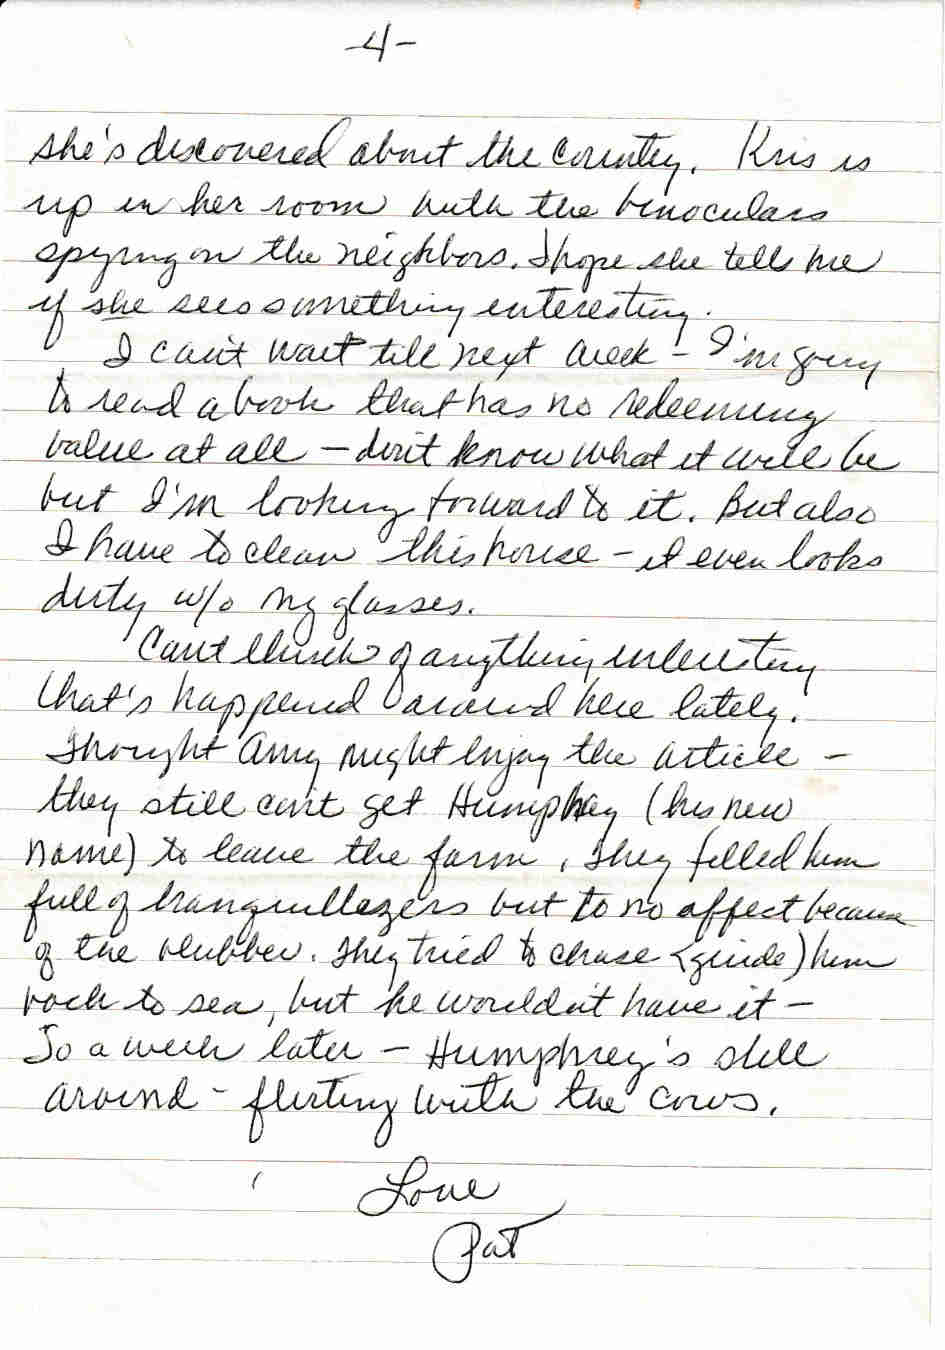 -4-
she's discovered about the country. Kris is
up in her room with the binoculars
spying on the neighbors. I hope she tells me
if she sees something interesting.
I can't wait till next week - I'm going
to read a book that has no redeeming
value at all - don't know what it will be
but I'm looking forward to it. But also
I have to clean this house - it even looks
dirty w/o my glasses.
Can't think of anything interesting
that's happened around here lately.
Thought Amy might enjoy the article -
they still can't get Humphrey (his new
name) to leave the farm, They filled him
full of tranquillezers but to no affect because
of the blubber. They tried to chase (guide) him
back to sea, but he wouldn't have it -
So a week later - Humphrey's still
around - flirting with the cows.
Love
Pat